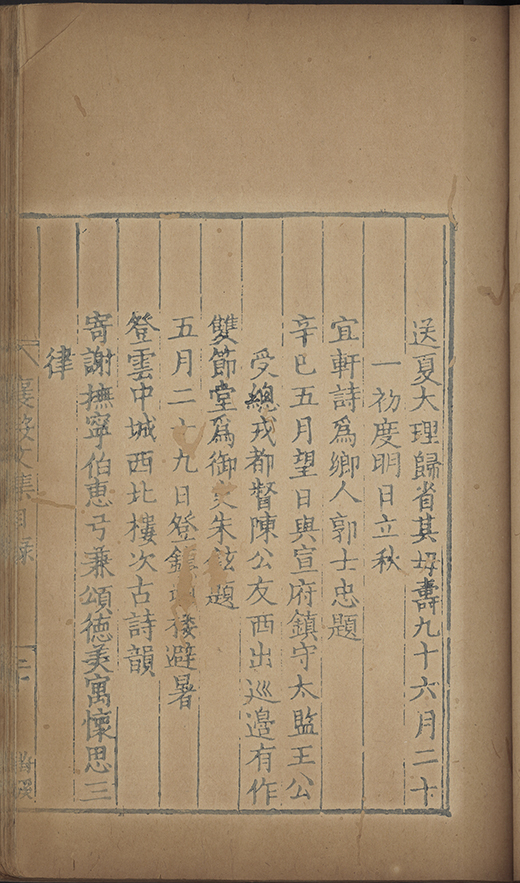 送夏大理歸省其母壽九十六月二十
一初度明日立秋
宜軒詩爲鄉人郭士忠題
辛巳五月望日與宣府鎮守太監王公
受總戎都督陳公友西出巡邊有作
雙節堂爲御史朱鉉題
五月二十九日登鎮樓避暑
登雲中城西北樓次古詩韻
寄謝撫寧伯惠弓兼頌德美寓懷思三
律
襄毅文集目録